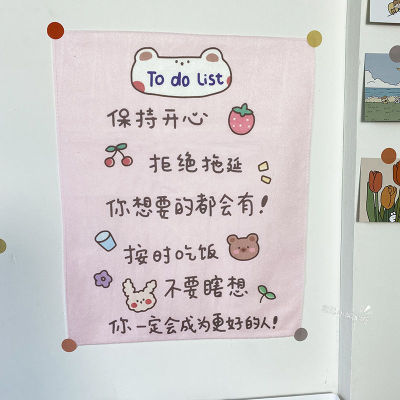 To do List
保持开心
拒绝拖延
你想要的都会有!
按时吃饭
不要瞎想
你一定会成为更好的人!